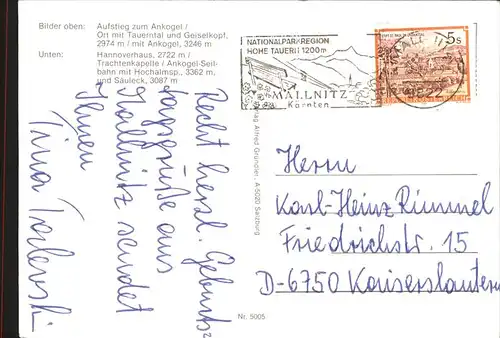 Bilder oben: Aufstieg zum Ankogel /
Ort mit Tauerntal und Geiselkopf,
2974 m / mit Ankogel, 3246 m
Unten: Hannoverhaus, 2722 m /
Trachtenkapelle / Ankogel-Seil-
bahn mit Hochalmsp., 3362 m,
und Säuleck, 3087 m
NATIONALPARKREGION
HOHE TAUERN 1200m
MALLNITZ
Kärnten
5s
Recht herzl. Geburts-
tagsgrüße aus
Mallnitz sendet
Ihnen
Tina
Verlag Alfred Gründler, A-5020 Salzburg
Herrn
Karl-Heinz Rimmel
Friedrichstr. 15
D-6750 Kaiserslautern
Nr. 5005